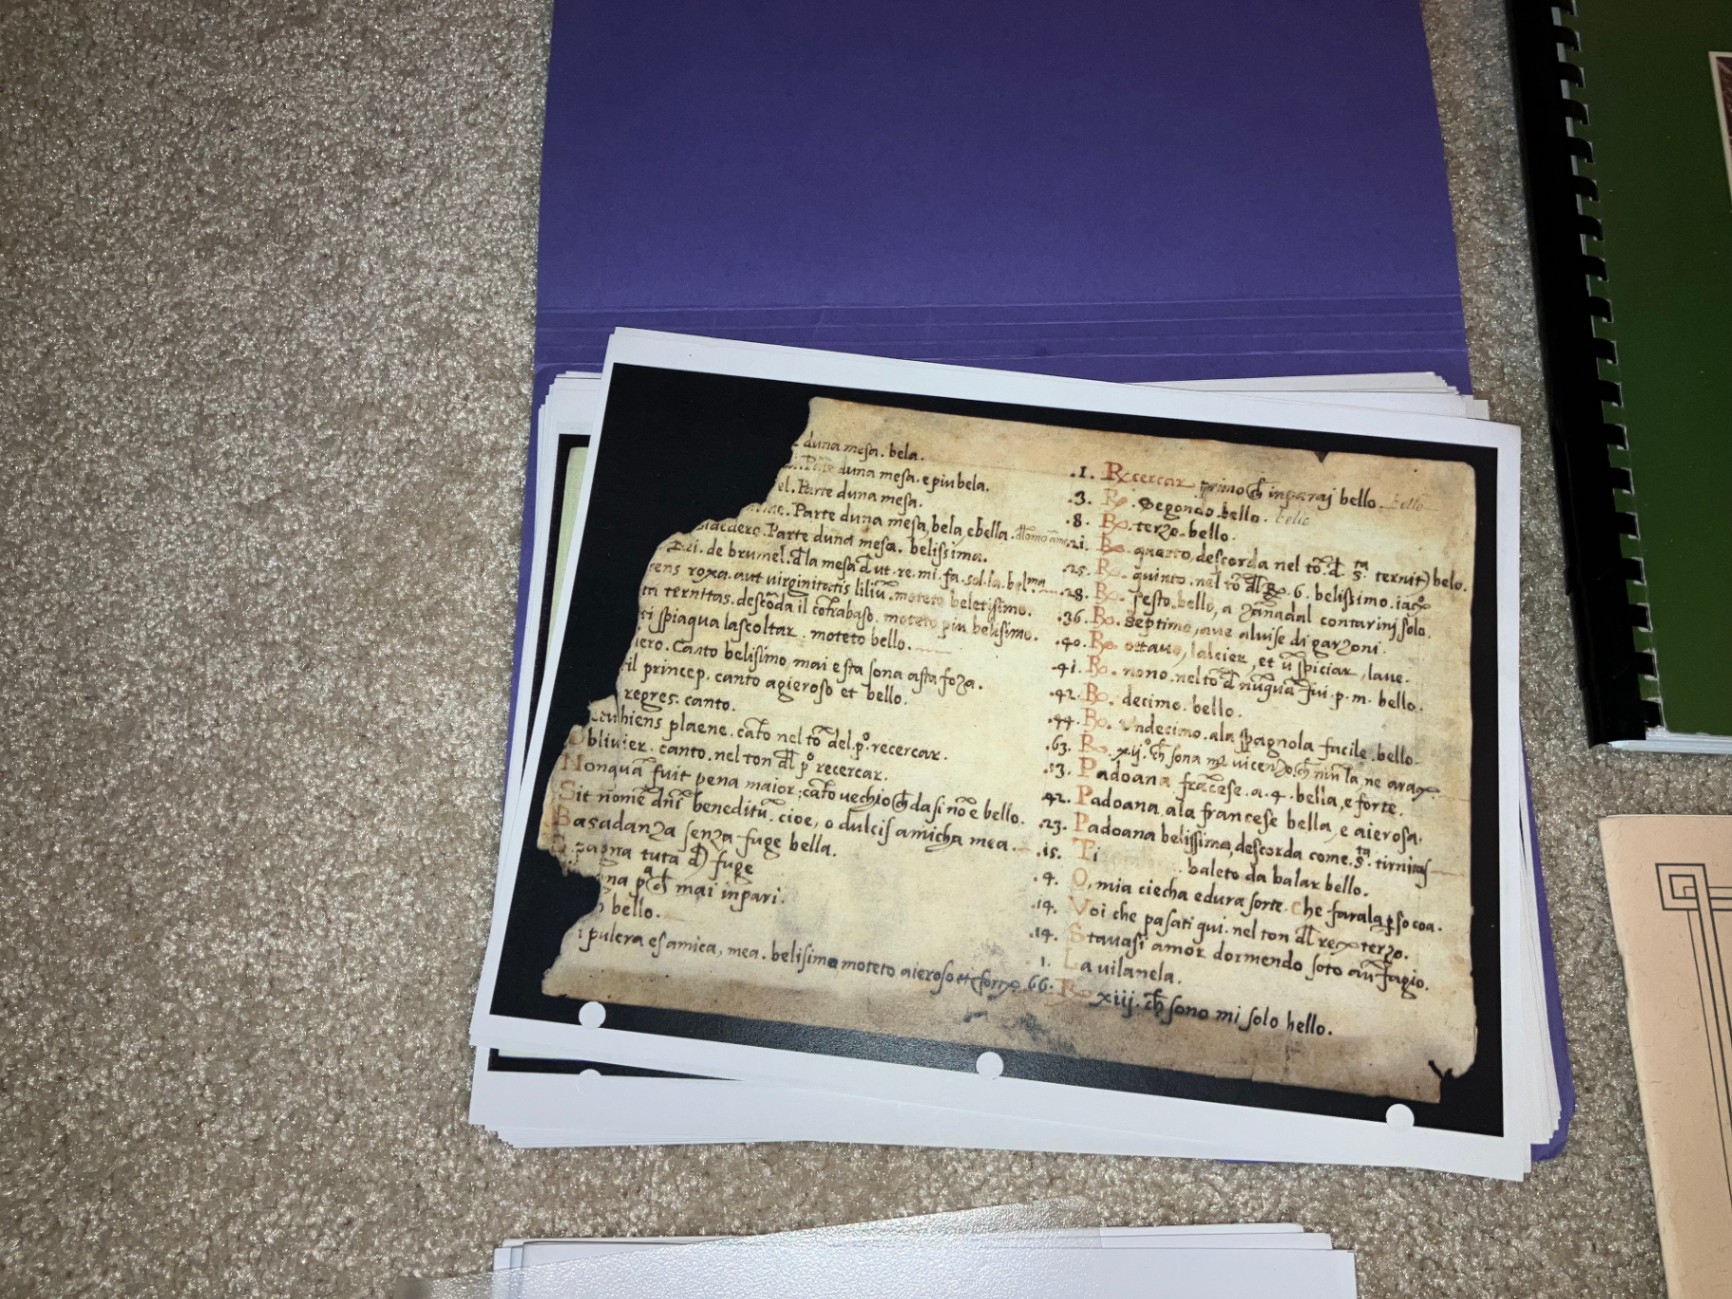 duna mesa. bela.
Parte duna mesa. e piu bela.
el. Parte duna mesa.
Parte duna mesa, bela ebella.
Parte duna mesa. belissima.
de brumel. dla mesa d ut. re. mi. fa. sol. la.
ens roxa. aut virginitatis liliũ. moteto beletisimo.
ternitas. descõda il cõtrabaso. moteto piu belisimo.
ti spiaqua lascoltar. moteto bello.
iero. Canto belisimo, mai esta sona asta foza.
il princep. canto agieroso et bello.
regres. canto.
hiens plaene. cãto nel tõ del pº. recercar.
Oblivier. canto. nel ton dl pº recercar.
Nonquã fuit pena maior; cãto vechio ch dasi nõ e bello.
Sit nome dñi beneditũ. cioe, o dulcis amicha mea.
Basadanza senza fuge bella.
tuta fuge
mai inpari.
bello.
i pulcra es amica, mea. belisimo moteto aieroso et forte
.1. Recercar primo ch inparaj bello. bello
.3. Re. Segondo. bello. bello
.8. Re. terzo. bello.
.21. Re. quarto, descorda nel tõ d s.ta ternit) belo.
.25. Re. quinto. nel tõ dl Re. 6. belissimo.
.28. Re. sesto. bello, a zãnadal contarinj solo.
.36. Re. Septimo, ave alvise di garzoni.
.40. Re. ottavo, lalcier, et ũ spiciar, lave.
.41. Re. nono. nel tõ d nũquã fui. p. m. bello.
.42. Re. decimo. bello.
.44. Re. Undecimo. ala spagnola facile. bello
.63. Re. xij. ch sona mº vicenzo, ch niun la, ne
.13. Padoana frãcese. a. 4. bella, e forte.
.42. Padoana, ala francese bella, e aierosa.
.23. Padoana belissima, descorda come. s.ta
.15. Ti baleto da balar bello.
.4. O, mia ciecha e dura sorte. Che farala
.14. Voi che pasati qui. nel ton dl terzo.
.14. Stavasi amor dormendo soto aũ fagio.
.1. La vilanela.
66. Re. xiij. ch sono mi solo bello.